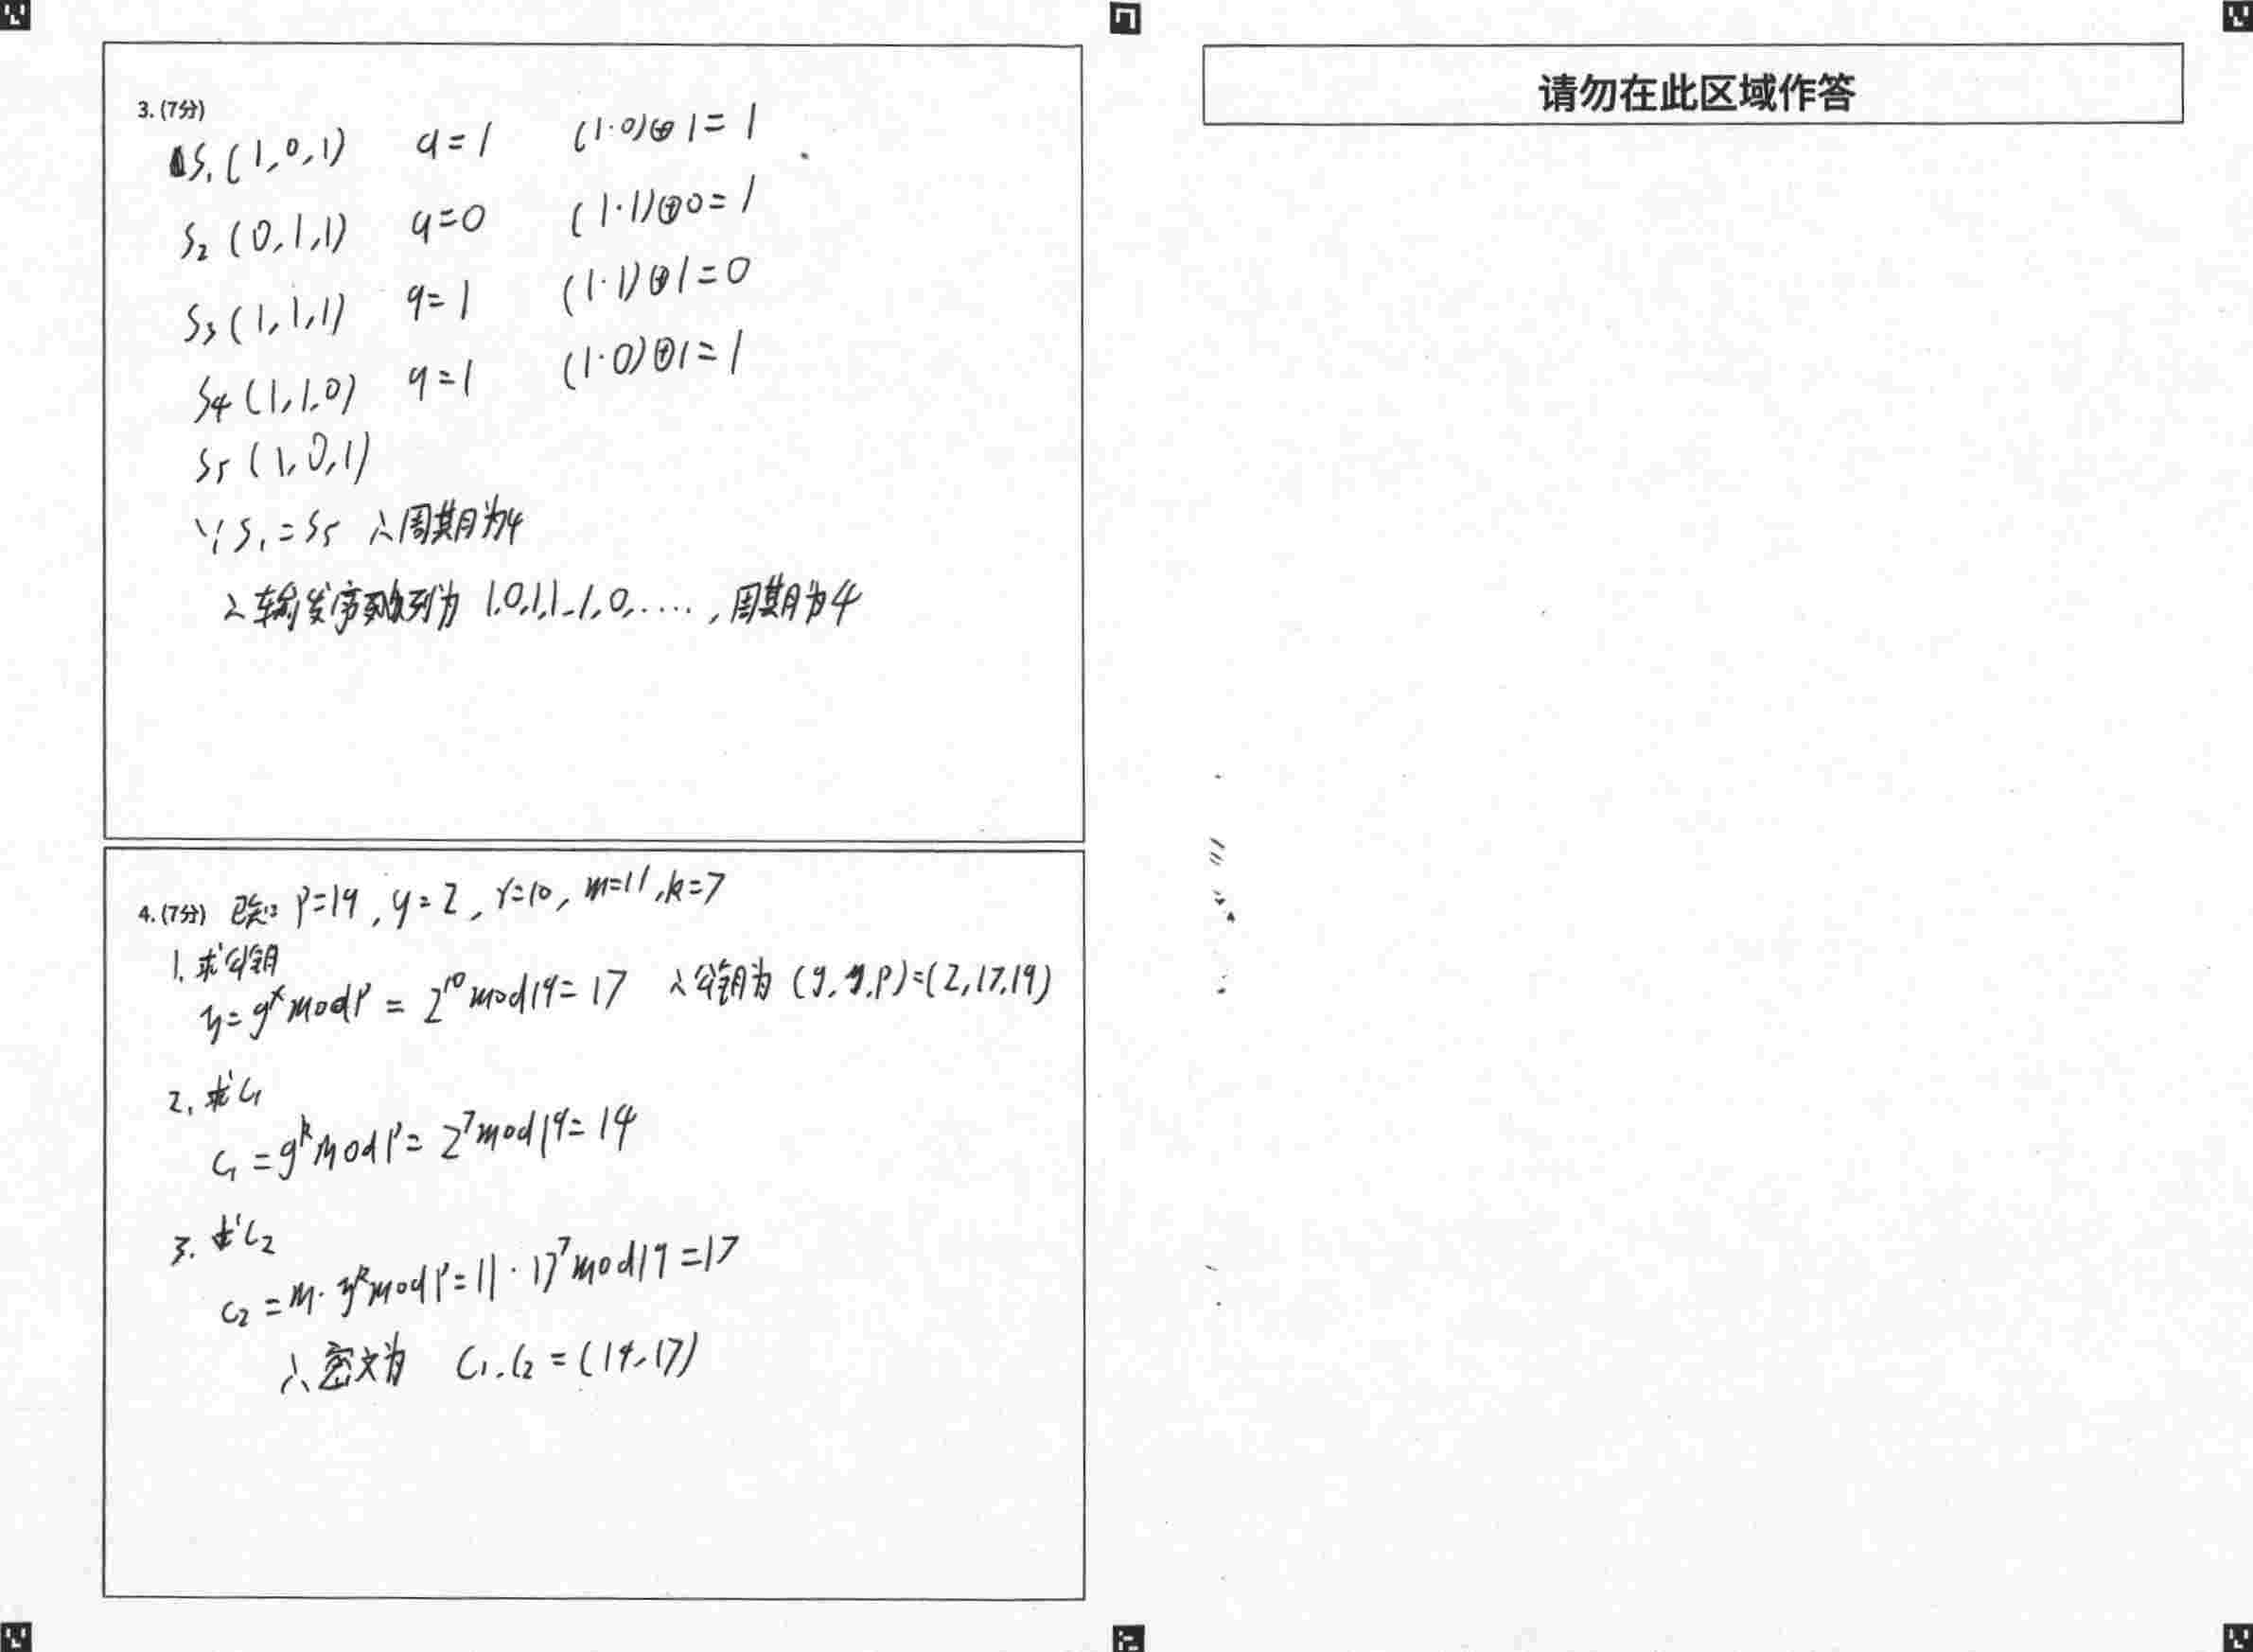 请勿在此区域作答
3. (7分)
S₁ (1,0,1) a=1 (1·0)⊕1=1
S₂ (0,1,1) a=0 (1·1)⊕0=1
S₃ (1,1,1) a=1 (1·1)⊕1=0
S₄ (1,1,0) a=1 (1·0)⊕1=1
S₅ (1,0,1)
∵S₁=S₅ ∴周期为4
∴输出序列为 1,0,1,1,1,0,...., 周期为4
4. (7分) 已知: P=19, g=2, r=10, m=11, k=7
1. 求公钥
y=gˣmodP = 2¹⁰mod19=17 ∴公钥为 (g,y,p)=(2,17,19)
2. 求C₁
C₁=gᵏmodP=2⁷mod19=14
3. 求C₂
C₂=m·yᵏmodP=11·17⁷mod19=17
∴密文为 C₁,C₂=(14,17)